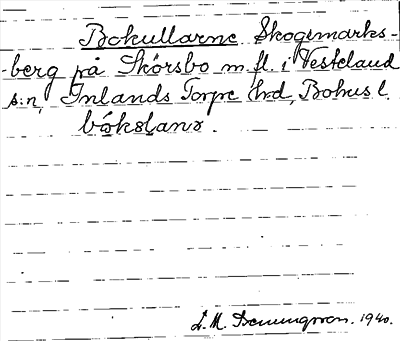 Bokullarne Skogsmarks-
-berg på Skörsbo m.fl. i Vesteland
s:n, Inlands Torpe hrd, Bohus l.
bokslans.
L.M. 1940.